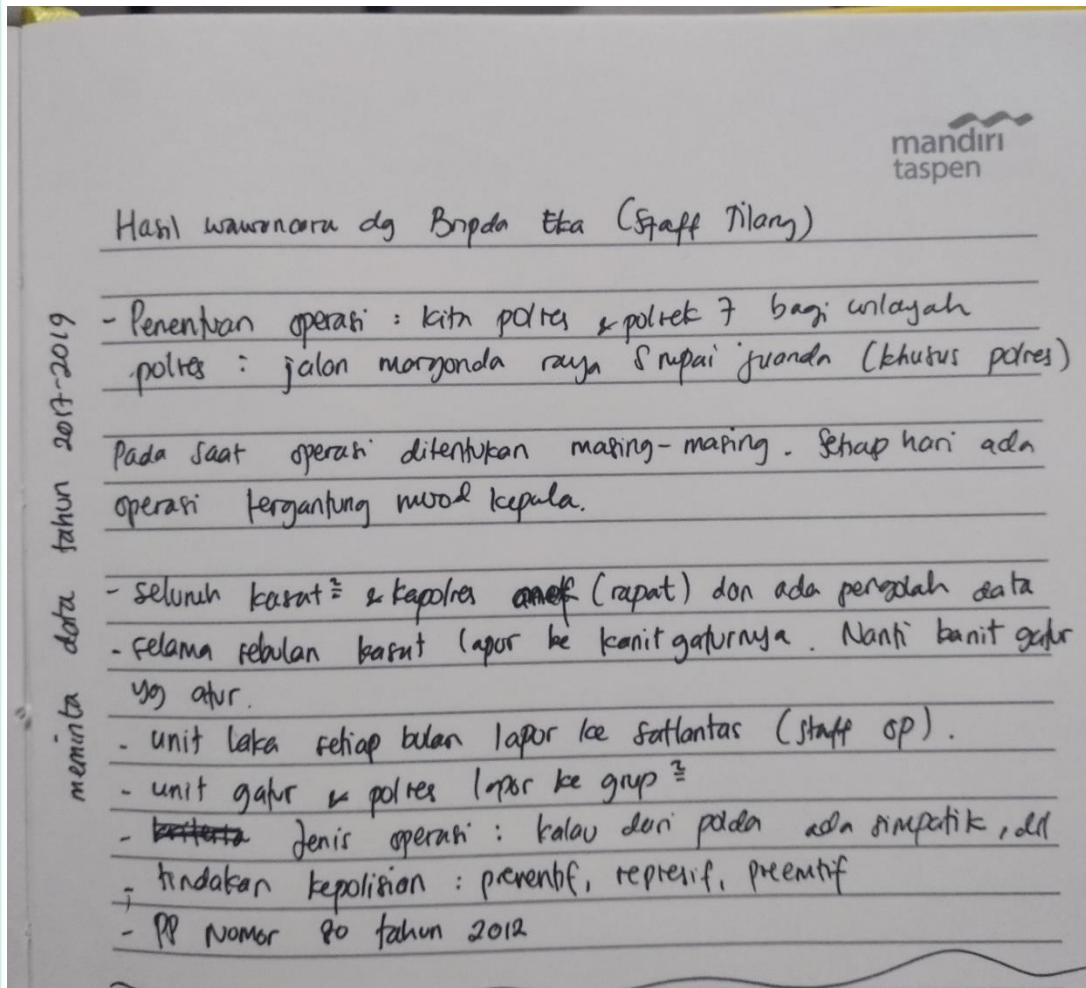 mandiri
taspen
Hasil wawancara dg Bripda Eka (Staff Tilang)
- Penentuan operasi : kita polres & polsek 7 bagi wilayah
polres : jalan margonda raya sampai juanda (khusus polres)
Pada saat operasi ditentukan masing-masing. Setiap hari ada
operasi tergantung mood kepala.
- seluruh kasat² & kapolres anef (rapat) dan ada pengolah data
- selama sebulan kasat lapor ke kanit gaturnya. Nanti kanit gatur
yg atur.
- unit laka setiap bulan lapor ke satlantas (staff op).
- unit gatur & polres lapor ke grup²
- Jenis operasi : kalau dari polda ada simpatik, dll
- tindakan kepolisian : preventif, represif, preemtif
- PP Nomor 80 tahun 2012
meminta data tahun 2017-2019